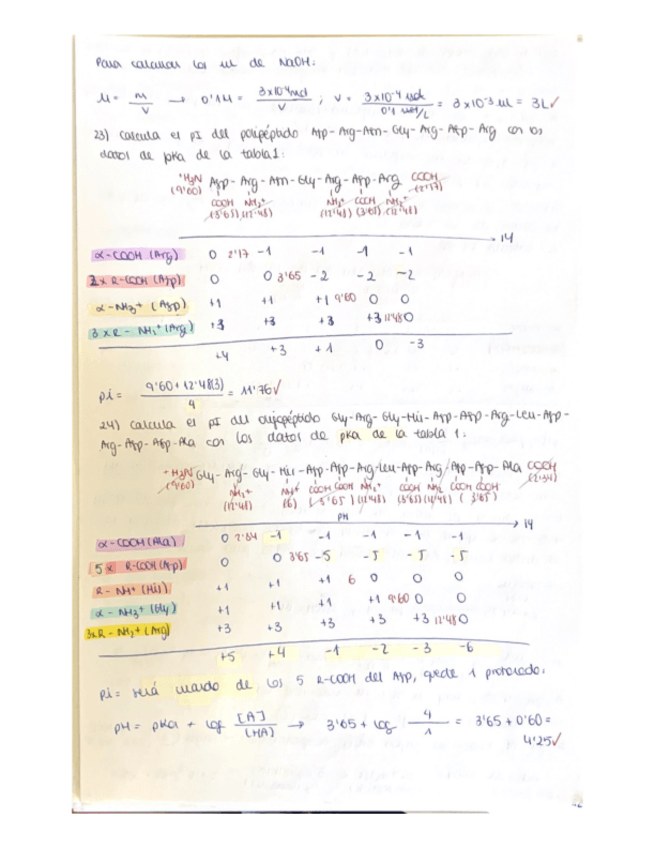 Para calcular los ml de NaOH:
M = m/v → 0'1M = 3x10⁻⁴mol/v ; V = 3x10⁻⁴ mol / 0'1 mol/L = 3x10⁻³ ml = 3L✓
23) Calcula el pI del polipéptido Asp-Arg-Asn-Gly-Arg-Asp-Arg con los
datos de pKa de la tabla 1:
⁺H₃N Asp-Arg-Asn-Gly-Arg-Asp-Arg COOH
(9'60) (2'17)
COOH NH₂⁺ NH₂⁺ COOH NH₂⁺
(3'65) (12'48) (12'48) (3'65) (12'48)
→ 14
α-COOH (Arg) 0 2'17 -1 -1 -1 -1
2x R-COOH (Asp) 0 0 3'65 -2 -2 -2
α-NH₃+ (Asp) +1 +1 +1 9'60 0 0
3 x R-NH₂+ (Arg) +3 +3 +3 +3 12'48 0
+4 +3 +1 0 -3
pi = 9'60+12'48(3) / 4 = 11'76✓
24) Calcula el pI del Gly-Arg-Gly-His-Asp-Asp-Arg-Leu-Asp-
Arg-Asp-Asp-Ala con los datos de pKa de la tabla 1:
H₃N Gly-Arg-Gly-His-Asp-Asp-Arg-Leu-Asp-Arg Asp-Asp-Ala COOH
(9'60) (2'34)
NH₂+ NH+ COOH COOH NH₂+ COOH NH₂ COOH COOH
(12'48) (6) (3'65) (12'48) (3'65) (12'48) (3'65)
PH → 14
α-COOH (Ala) 0 2'34 -1 -1 -1 -1 -1
5 x R-COOH (Asp) 0 0 3'65 -5 -5 -5 -5
R-NH+ (His) +1 +1 +1 6 0 0 0
α-NH₃+ (Gly) +1 +1 +1 +1 9'60 0 0
3xR-NH₂+ (Arg) +3 +3 +3 +3 +3 12'48 0
+5 +4 -1 -2 -3 -6
pi = será cuando de los 5 R-COOH del Asp, quede 1 protonado:
pH = pKa + log [A⁻]/[HA] → 3'65 + log 4/1 = 3'65 + 0'60 =
4'25✓